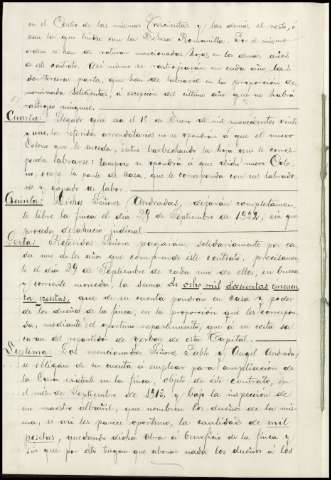 en el Centro de las mismas Trescientas y las demás al resto, ó
sea la que linda con la Dehesa Bordonilla. Por el mismo
orden se han de roturar mencionadas hojas en los demas años
de él contrato. Así mismo se rastrojearán en cada año las
dos terceras partes, que han de labrarse en la proporción de
nominada Solidarios, á excepcion del ultimo año que no habrá
rastrojo ninguno.
Cuarta: Llegado que sea el 15 de Enero de mil novecientos veinte
y uno los referidos arrendatarios no se opondrán á que el nuevo
Colono que le suceda, entre barbechando la hoja que le corres-
ponda labrarse: tampoco se opondrá á que dicho nuevo Colo-
no, ocupe la parte de Casa, que le corresponda con sus labrado-
res y ganado de labor.
Quinta: Dichos Señores Andradas, dejarán completamen-
te libre la finca el dia 29 de Septiembre de 1922, sin que
proceda desahucio judicial.
Sexta: Referidos Señores pagaran, solidariamente por ca-
da uno de los años que comprende este contrato, precisamen-
te el dia 29 de Septiembre de cada uno de ellos, en buena
y corriente moneda, la suma de ocho mil doscientas cincuen
ta pesetas, que de su cuenta pondran en casa y poder
de los dueños de la finca, en la proporción que les correspon-
da, mediante el oportuno repartimiento, que á su costa sa
caran del repartidor de yerbas de esta Capital.
Septima: Los mencionados Señores Pablo y Angel Andrada,
se obligan de su cuenta á emplear para ampliacion de
la Casa existente en la finca, objeto de este contrato, en
el mes de Septiembre de 1915, y bajo la inspección de
un maestro albañil, que nombren los dueños de la mis-
ma, si asi les parece oportuno, la cantidad de mil
pesetas, quedando dicha obra á beneficio de la finca y
sin que por ello tengan que abonar nada los dueños á los